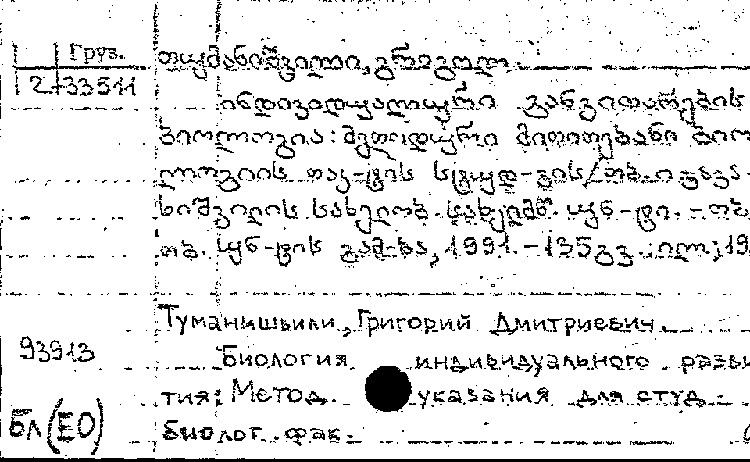 Груз.
თუმანიშვილი, გრიგოლ.
2-33511
ინდივიდუალური განვითარების
ბიოლოგია: მეთოდური მითითებანი ბიო
ლოგიის ფაკ-ტის სტუდ-ვის/თბ. ი. ჯავა-
ხიშვილის სახელობ. სახელმწ. უნ-ტი. - თბ.:
თბ. უნ-ტის გამ-ბა, 1991. - 135გვ.: ილ.; 19
Туманишвили, Григорий Дмитриевич.
93913
Биология индивидуального разви
тия: Метод. указания для студ.
Бл(ЕО)
биолог. фак.